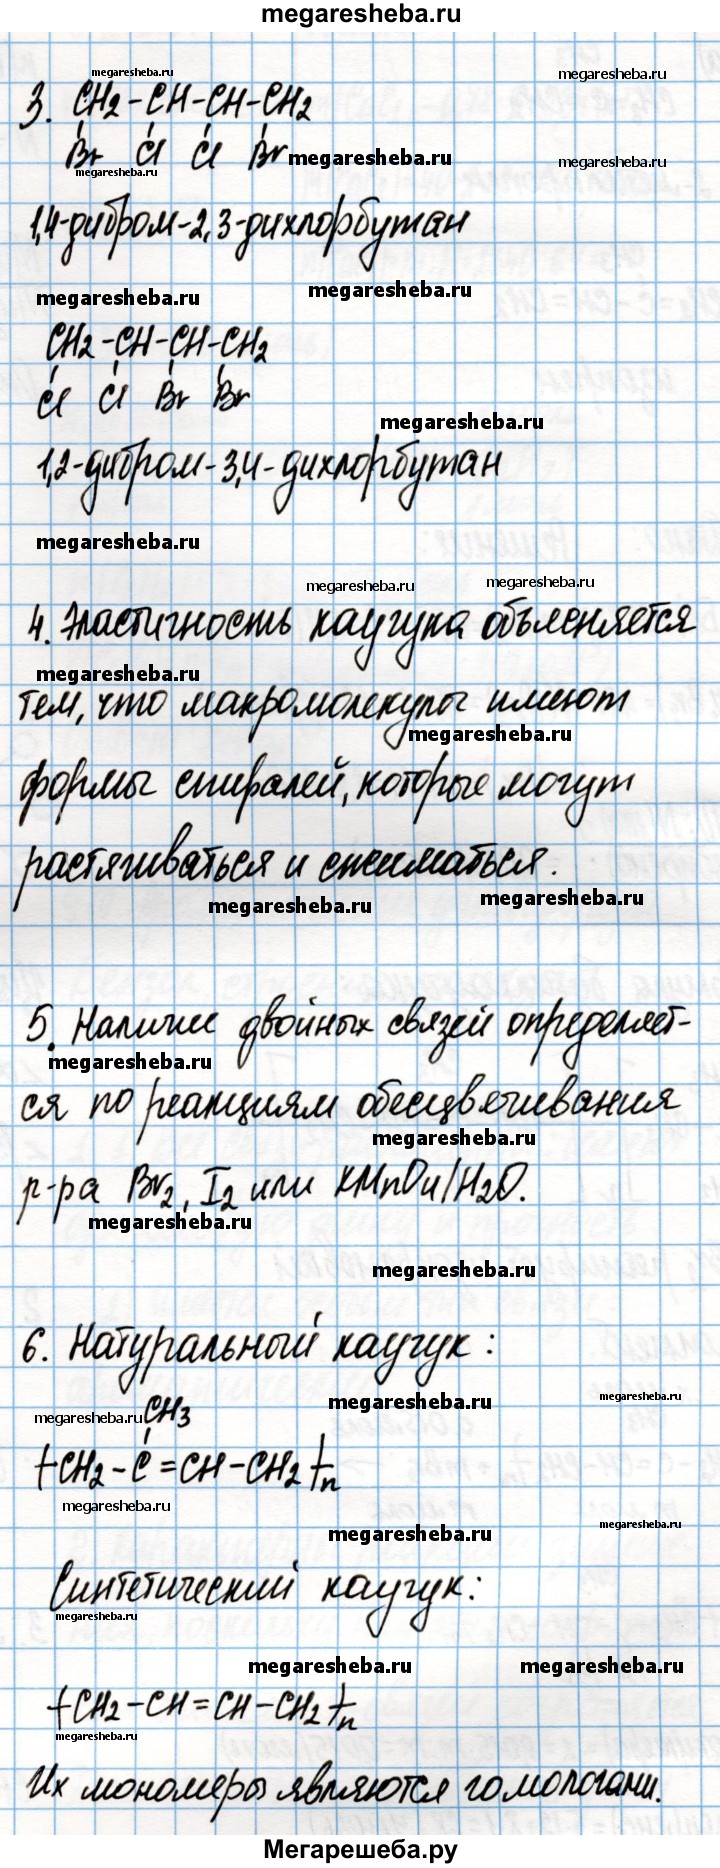 megaresheba.ru
megaresheba.ru
megaresheba.ru
3. CH2-CH-CH-CH2
Br Cl Cl Br
megaresheba.ru
megaresheba.ru
megaresheba.ru
1,4-дибром-2,3-дихлорбутан
megaresheba.ru
megaresheba.ru
CH2-CH-CH-CH2
Cl Cl Br Br
megaresheba.ru
1,2-дибром-3,4-дихлорбутан
megaresheba.ru
megaresheba.ru
megaresheba.ru
4. Эластичность каучука объясняется
megaresheba.ru
тем, что макромолекулы имеют
megaresheba.ru
формы спиралей, которые могут
растягиваться и сжиматься.
megaresheba.ru
megaresheba.ru
5. Наличие двойных связей определяет-
megaresheba.ru
ся по реакциям обесцвечивания
megaresheba.ru
р-ра Br2, I2 или KMnO4/H2O.
megaresheba.ru
megaresheba.ru
6. Натуральный каучук:
megaresheba.ru
megaresheba.ru
megaresheba.ru
CH3
+CH2-C=CH-CH2+n
megaresheba.ru
megaresheba.ru
megaresheba.ru
Синтетический каучук:
megaresheba.ru
megaresheba.ru
megaresheba.ru
+CH2-CH=CH-CH2+n
megaresheba.ru
Их мономеры являются гомологами.
Мегарешеба.ру